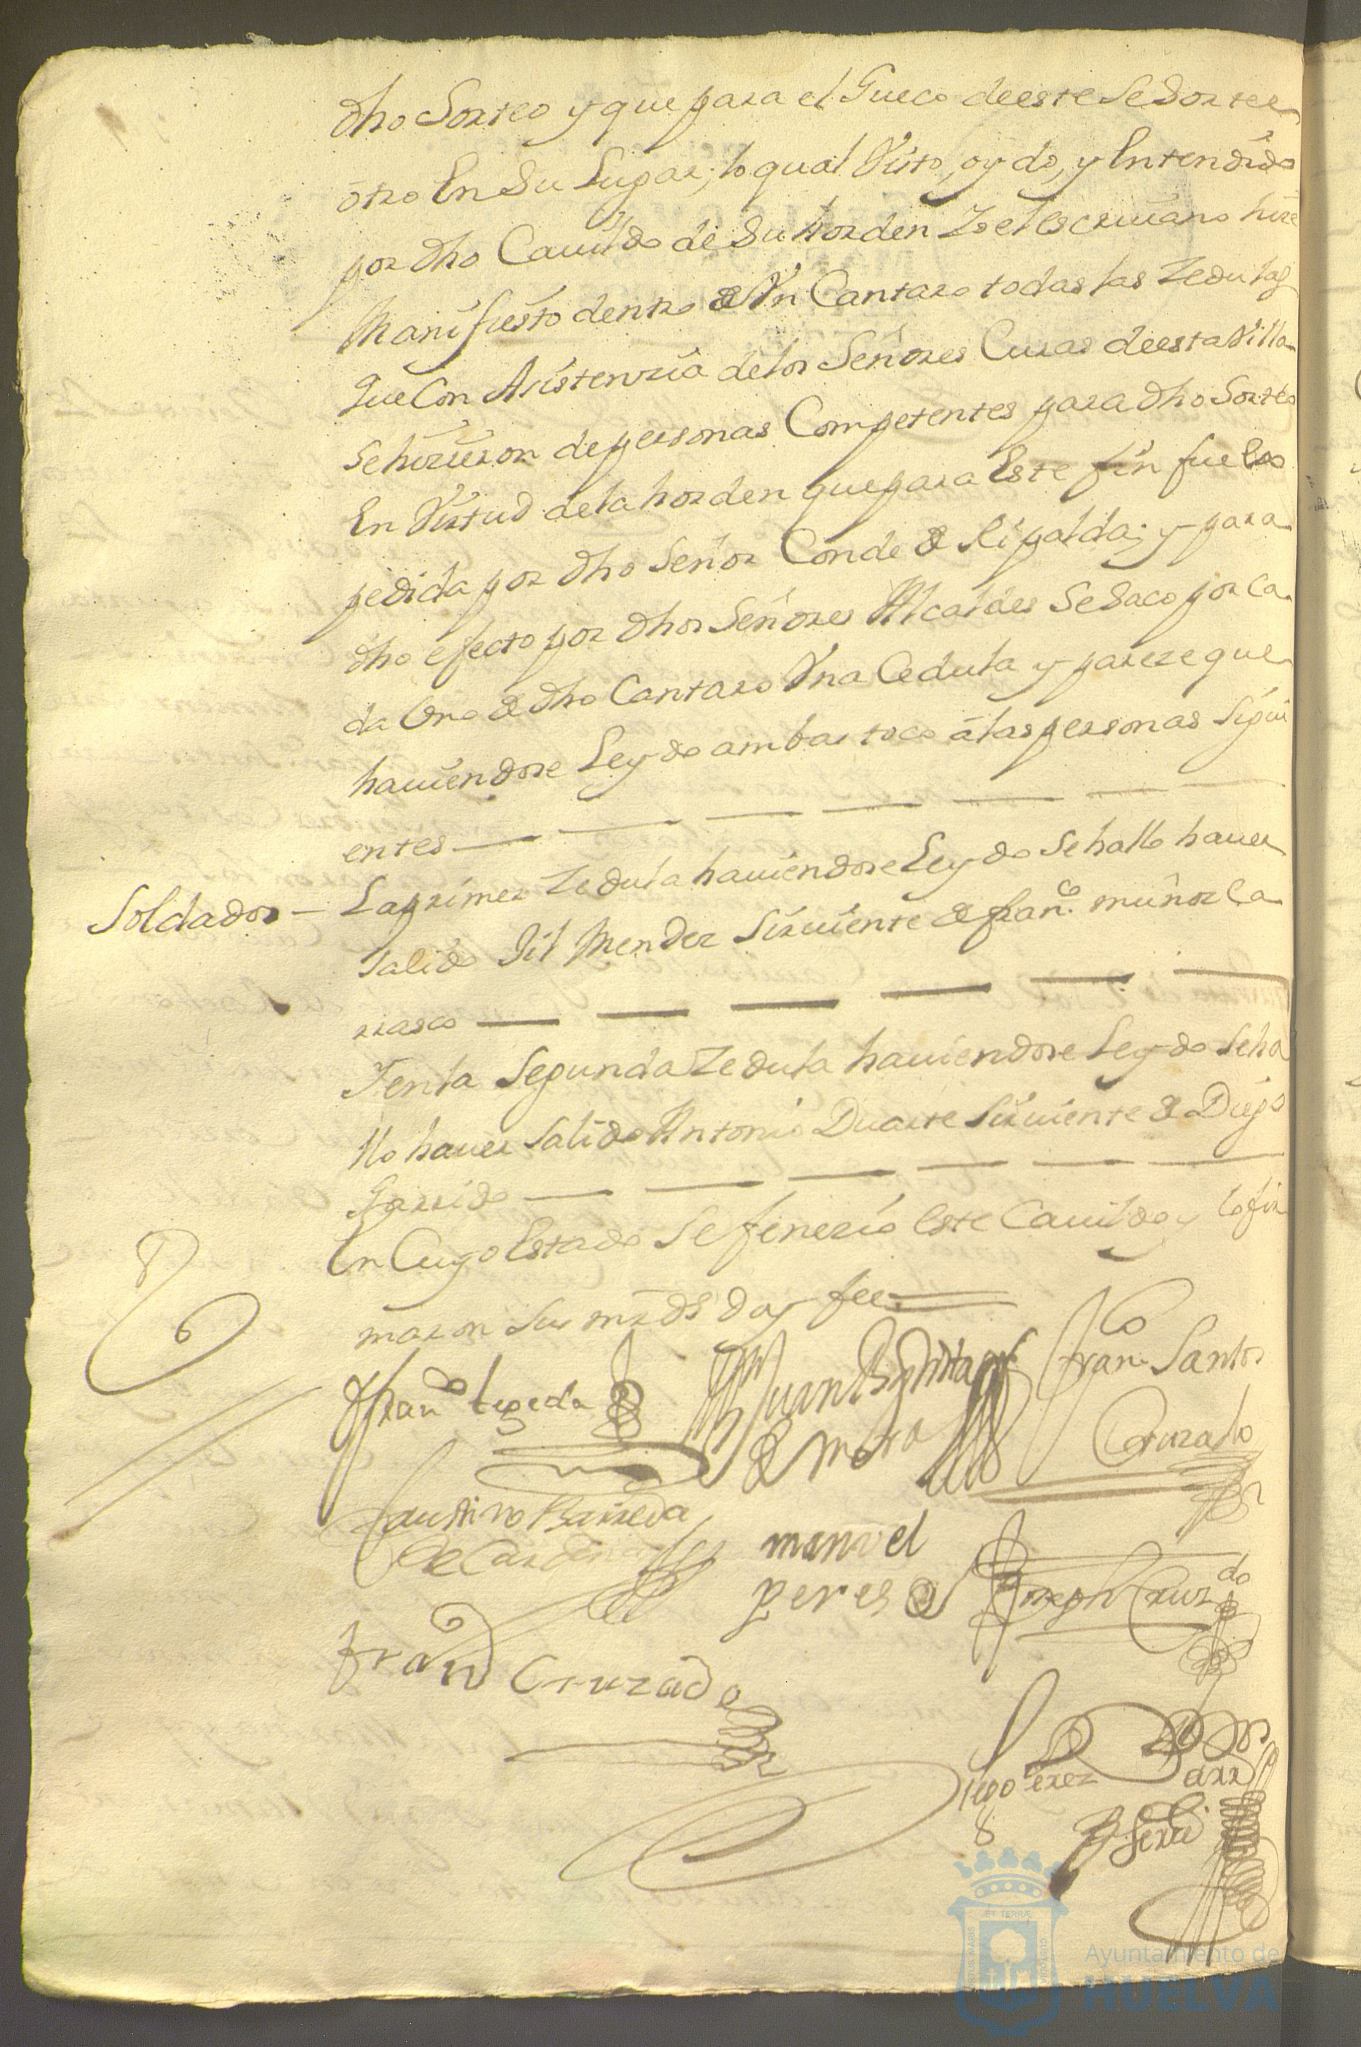 dho Sorteo y que para el Gueco deeste Se Sortee
otro En Su Lugar; lo qual Visto, oydo, y Entendido
por dho Cauildo de Su horden Yo el escriuano hize
Manifiesto dentro de Vn Cantaro todas las Zedulas
que Con Asistenzia delos Señores Curas deesta Villa
Se hizieron de personas Competentes para dho Sorteo
En Virtud dela horden que para Este fin fue Ex
pedida por dho Señor Conde de Ripalda; y para
dho efecto por dhos Señores Alcaldes Se Saco por ca
da Vno de dho Cantaro Vna Cedula y pareze que
hauiendose Leydo ambas toco â las personas Sigui
entes
Soldados – La primer Zedula hauiendose Leydo Se hallo hauer
Salido Gil Mendez Siruiente de Franco. muñoz Ca
rrasco
Y en la Segunda Zedula hauiendose Leydo Se ha
llo hauer Salido Antonio Duarte Siruiente de Diego
Garrido
En Cuyo Estado Se finezio Este Cauildo y lo fir
maron Sus mrds doy fee
Franco texeda
Juan Bapttista
de Mora
Franco Santos
Cruzado
Faustino Barreda
de Cardenas
manuel
peres
Joseph Cruzdo
Franco Cruzado
Diego Perez
Ayuntamiento de
HUELVA